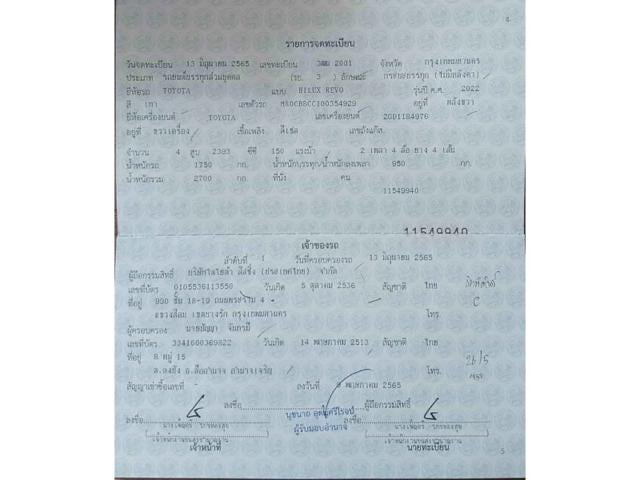 4
รายการจดทะเบียน
วันจดทะเบียน 13 มิถุนายน 2565 เลขทะเบียน 3ฒฒ 2001 จังหวัด กรุงเทพมหานคร
ประเภท รถยนต์บรรทุกส่วนบุคคล (รย. 3 ) ลักษณะ กระบะบรรทุก (ไม่มีหลังคา)
ยี่ห้อรถ TOYOTA แบบ HILUX REVO รุ่นปี ค.ศ. 2022
สี เทา เลขตัวรถ MR0CB8CC100354929 อยู่ที่ หลังขวา
ยี่ห้อเครื่องยนต์ TOYOTA เลขเครื่องยนต์ 2GD1184976
อยู่ที่ ขวาเครื่อง เชื้อเพลิง ดีเซล เลขถังแก๊ส
จำนวน 4 สูบ 2393 ซีซี 150 แรงม้า 2 เพลา 4 ล้อ ยาง 4 เส้น
น้ำหนักรถ 1750 กก. น้ำหนักบรรทุก/น้ำหนักลงเพลา 950 กก.
น้ำหนักรวม 2700 กก. ที่นั่ง คน
11549940
11549940
เจ้าของรถ
ลำดับที่ 1 วันที่ครอบครองรถ 13 มิถุนายน 2565
ผู้ถือกรรมสิทธิ์ บริษัทโตโยต้า ลีสซิ่ง (ประเทศไทย) จำกัด
เลขที่บัตร 0105536113550 วันเกิด 5 ตุลาคม 2536 สัญชาติ ไทย
ที่อยู่ 990 ชั้น 18-19 ถนนพระราม 4
แขวงสีลม เขตบางรัก กรุงเทพมหานคร โทร.
ผู้ครอบครอง นายปัญญา จันทรมี
เลขที่บัตร 3341600369822 วันเกิด 14 พฤษภาคม 2513 สัญชาติ ไทย
ที่อยู่ 8 หมู่ 15 26/5
อ.ลืออำนาจ อำนาจเจริญ โทร.
สัญญาเช่าซื้อเลขที่ - ลงวันที่ 9 พฤษภาคม 2565
ลงชื่อ ผู้ถือกรรมสิทธิ์
ผู้รับมอบอำนาจ
ลงชื่อ ลงชื่อ
เจ้าหน้าที่ นายทะเบียน
5